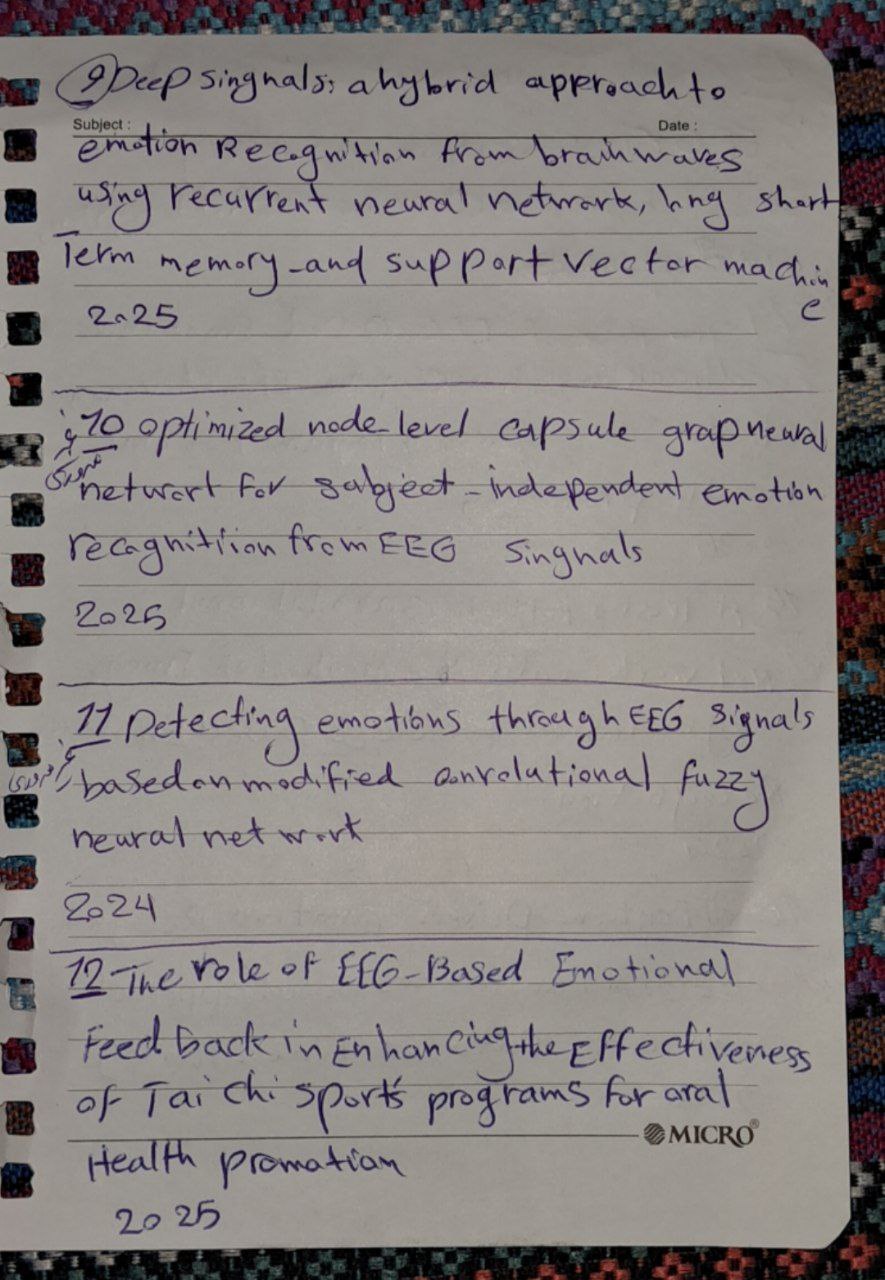 9 Deep singnals: a hybrid approach to
Subject : Date :
emotion Recognition from brainwaves
using recurrent neural network, long short
Term memory and support vector machin
e
2025
10 optimized node-level capsule grap neural
networt for sabject-independent emotion
recognitiion from EEG Singnals
2025
11 Detecting emotions through EEG signals
based on modified convolutional fuzzy
neural network
2024
12 The role of EEG-Based Emotional
Feed back in Enhancing the Effectiveness
of Tai chi sports programs for oral
MICRO®
Health promotion
2025